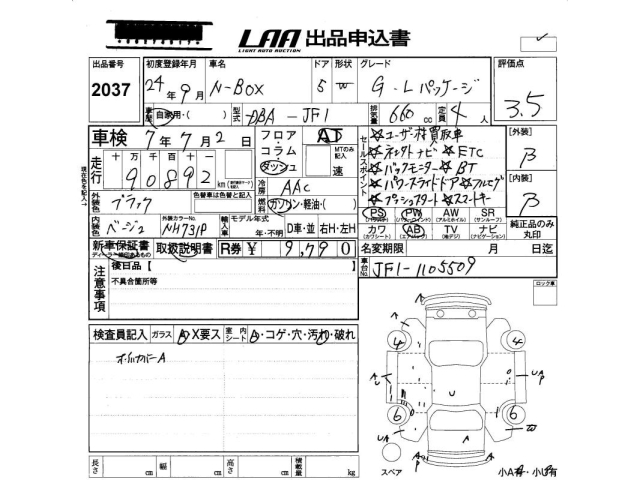 LAA 出品申込書
LIGHT AUTO AUCTION
出品番号 初度登録年月 車名 ドア 形状 グレード 評価点
2037 24年9月 N-BOX 5 W G・Lパッケージ 3.5
車歴 自家用・( ) 型式 DBA-JF1 排気量 660cc 定員 4人
車検 7年7月2日 フロア・コラム・ダッシュ AT
MTのみ記入 速
走行 十万 千 百 十 一
90892 km
冷房 AAC
外装色 ブラック 色替車は色替と記入 燃料 ガソリン・軽油・( )
内装色 ベージュ 外装カラーNo. NH731P 輸入車 モデル年式 年・不明 D車・並 右H・左H
新車保証書 取扱説明書 R券 ¥ 9,790
ディーラー捺印あるもの
セールスポイント
☆ユーザー買取車
☆ナビ ☆ETC
☆バックモニター ☆BT
☆パワースライドドア ☆フルセグ
☆プッシュスタート ☆スマートキー
PS PW AW SR
(パワステ) (パワーウインド) (アルミホイル) (サンルーフ)
カワ AB TV ナビ
(カワシート) (エアバッグ) (地デジ) (ナビゲーション)
[外装] B
[内装] B
純正品のみ丸印
名変期限 月 日迄
車台No. JF1-1105509
注意事項 後日品【
不具合箇所等
ロック車
検査員記入 ガラス A・X要ス 室内シート A・コゲ・穴・汚れ・破れ
オイルカバーA
A
A
4 4
A U
UA P
U
6 6
UA P
W
A
A
A P
スペア 小A有・小U有
長さ cm 幅 cm 高さ cm 積載量 kg